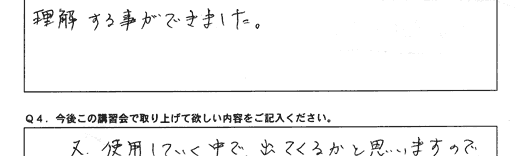 理解する事ができました。
Q4．今後この講習会で取り上げて欲しい内容をご記入ください。
又、使用していく中で、出てくるかと思いますので